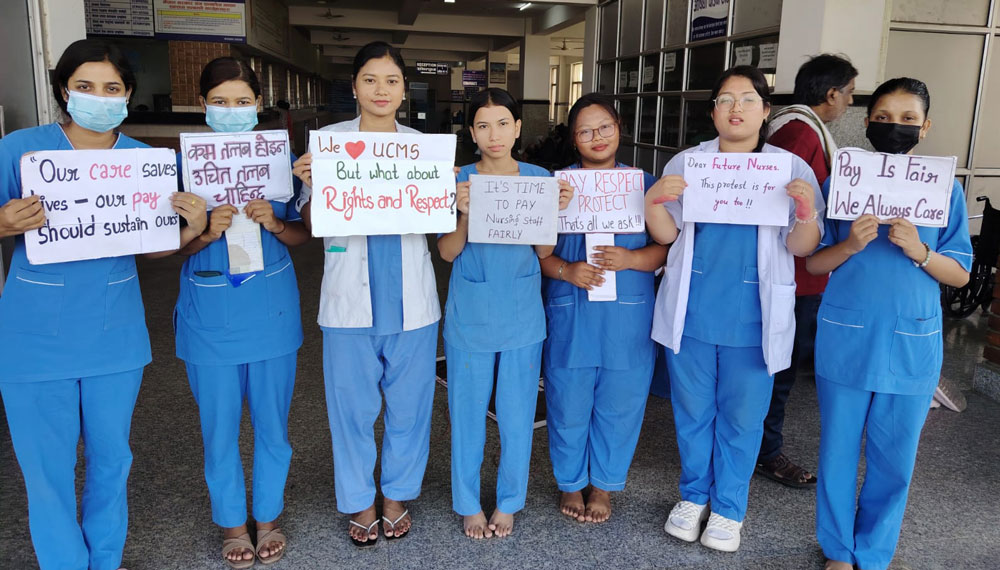 "Our care saves
lives – our pay
should sustain ours
कम तलब होईन
उचित तलब
चाहिन्छ
We ❤ UCMS
But what about
Rights and Respect?
IT'S TIME
TO PAY
Nursing Staff
FAIRLY
PAY RESPECT
PROTECT
That's all we ask!!!
Dear Future Nurses.
This protest is for
you too !!
Pay Is Fair
We Always Care